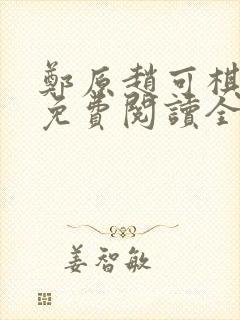 鄭原趙可棋
免費閱讀全
姜智敏